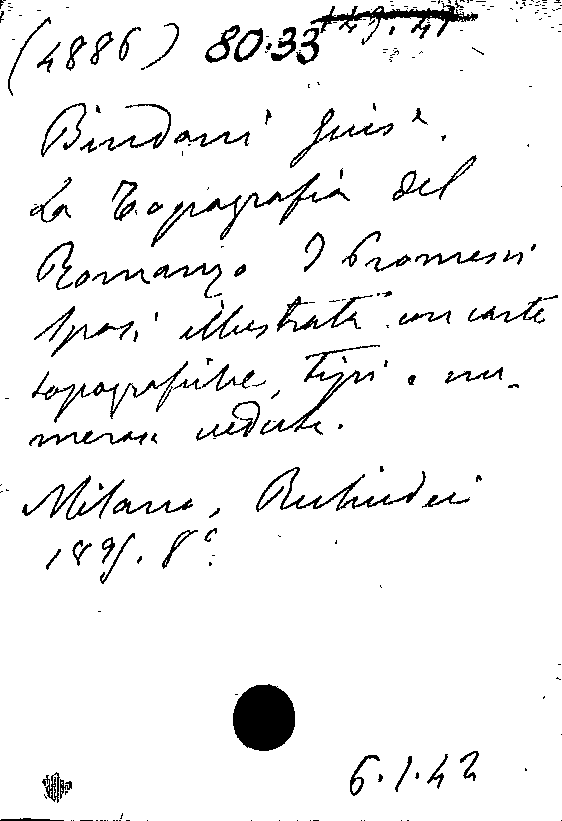 (4886) 80.33 149.41
Bindoni Gius.
La Topografia del
Romanzo I Promessi
Sposi illustrata con carte
topografiche, tipi e nu-
merose vedute.
Milano, Rechiedei
1895. 8°
6.1.42